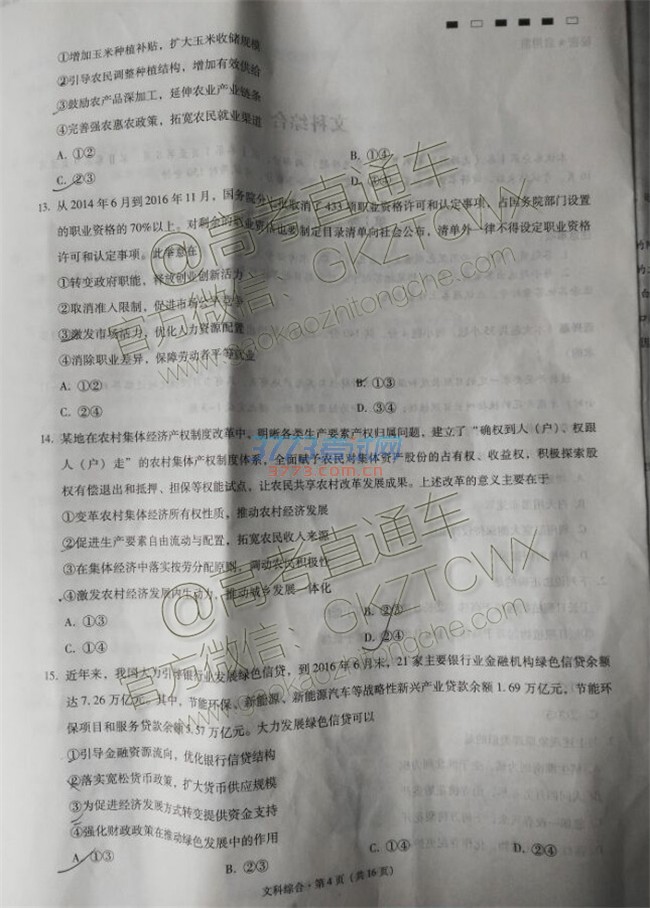 ①增加玉米种植补贴，扩大玉米收储规模
②引导农民调整种植结构，增加有效供给
③鼓励农产品深加工，延伸农业产业链条
④完善强农惠农政策，拓宽农民就业渠道
A. ①② B. ①④
C. ②③ D.
13. 从 2014 年 6 月到 2016 年 11 月，国务院分 取消了 433 项职业资格许可和认定事项，占国务院部门设置
的职业资格的 70%以上。对剩余的职业资格也要制定目录清单向社会公布，清单外一律不得设定职业资格
许可和认定事项。此举意在
①转变政府职能，释放创业创新活力
②取消准入限制，促进市场公平竞争
③激发市场活力，优化人力资源配置
④消除职业差异，保障劳动者平等就业
A. ①② B. ①③
C. ②④ D. ③④
14. 某地在农村集体经济产权制度改革中，明晰各类生产要素产权归属问题，建立了“确权到人（户）、权跟
人（户）走”的农村集体产权制度体系，全面赋予农民对集体资产股份的占有权、收益权，积极探索股
权有偿退出和抵押、担保等权能试点，让农民共享农村改革发展成果。上述改革的意义主要在于
①变革农村集体经济所有权性质，推动农村经济发展
②促进生产要素自由流动与配置，拓宽农民收入来源
③在集体经济中落实按劳分配原则，调动农民积极性
④激发农村经济发展内生动力，推动城乡发展一体化
A. ①③ B. ②③
C. ①④ D. ②④
15. 近年来，我国大力引导银行业发展绿色信贷，到 2016 年 6 月末，21 家主要银行业金融机构绿色信贷余额
达 7.26 万亿元。其中，节能环保、新能源、新能源汽车等战略性新兴产业贷款余额 1.69 万亿元，节能环
保项目和服务贷款余额 5.57 万亿元。大力发展绿色信贷可以
①引导金融资源流向，优化银行信贷结构
②落实宽松货币政策，扩大货币供应规模
③为促进经济发展方式转变提供资金支持
④强化财政政策在推动绿色发展中的作用
A. ①③ B. ②③ C. ①④ D. ②④
文科综合·第 4 页（共 16 页）
@高考直通车
官方微信、GKZTCWX
www.gaokaozhitongche.com
3773考试网
3773.com.cn
@高考直通车
官方微信、GKZTCWX
www.gaokaozhitongche.com